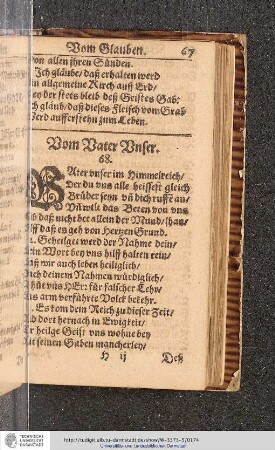 Vom Glauben. 67
von allen jhren Sünden.
Ich gläube/ daß erhalten werd
in allgemeine Kirch auff Erd/
bey der stets bleib deß Geistes Gab:
ch gläub/ daß dieses Fleisch vom Grab
Werd aufferstehn zum Leben.
Vom Vater Vnser.
68.
VAter vnser im Himmelreich/
Der du vns alle heissest gleich
Brüder seyn vñ dich ruffē an/
Vñ wilt das Beten von vns
daß nicht bet allein der Mund/
ilff daß es geh von Hertzen Grund.
2. Geheilget werd der Nahme dein/
ein Wort bey vns hilff halten rein/
aß wir auch leben heiliglich/
ach deinem Nahmen würdiglich/
hüt vns HErr für falscher Lehr/
as arm verführte Volck bekehr.
. Es kom dein Reich zu dieser Zeit/
nd dort hernach in Ewigkeit/
er heilge Geist vns wohne bey
it seinen Gaben mancherley/
H ij Deß
TECHNISCHE
UNIVERSITÄT
DARMSTADT
http://tudigit.ulb.tu-darmstadt.de/show/W-3373-5/0174
Universitäts- und Landesbibliothek Darmstadt